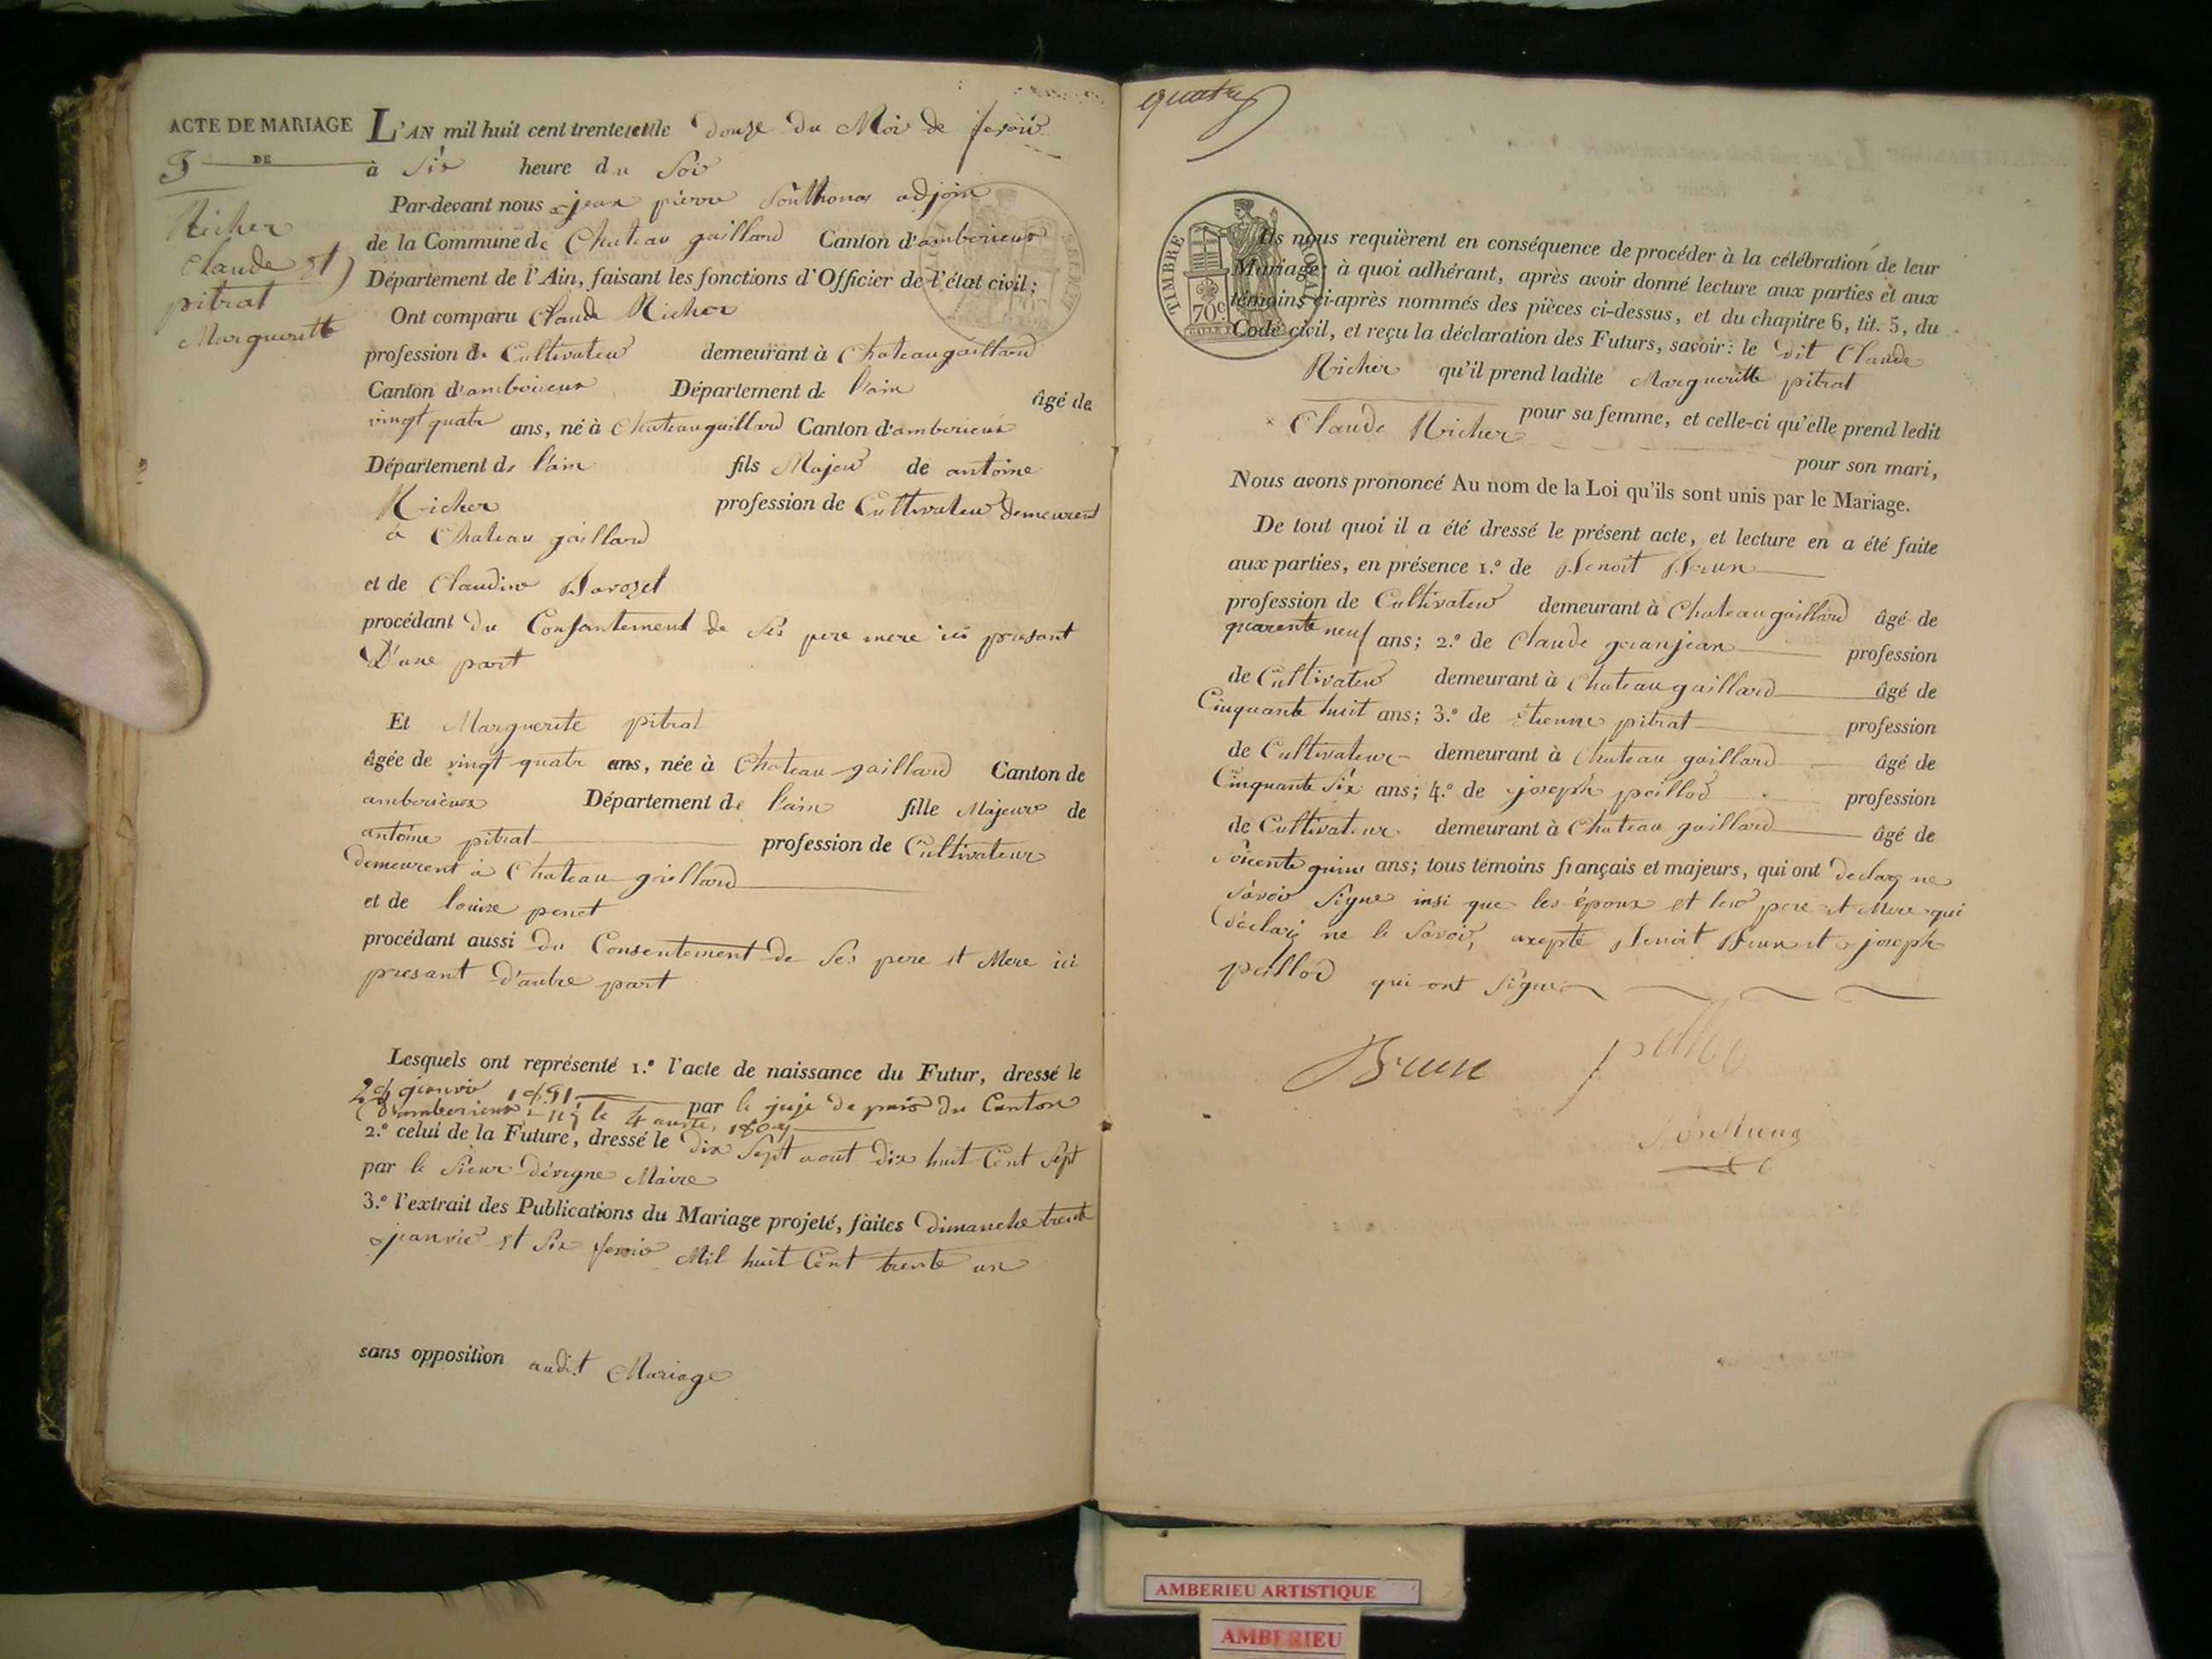 ACTE DE MARIAGE
DE
3
Richer
Claude et
pitrat
Margueritte
L'AN mil huit cent trente et le douze du Moi de fevrié
à Six heure du Soir
Par-devant nous jean pierre adjoin
de la Commune de Chateau gaillard Canton d'amberieux
Département de l'Ain, faisant les fonctions d'Officier de l'état civil;
Ont comparu Claude Richer
profession de Cultivateur demeurant à Chateaugaillard
Canton d'amberieux Département de l'ain âgé de
vingt quatr ans, né à Chateaugaillard Canton d'amberieux
Département de l'ain fils Majeur de antoine
Richer profession de Cultivateur demeurent
à Chateau gaillard
et de Claudine
procédant du Consantement de Ses pere mere ici presant
D'une part
Et Marguerite pitrat
âgée de vingt quatr ans, née à Chateau gaillard Canton de
amberieux Département de l'ain fille Majeure de
antoine pitrat profession de Cultivateur
demeurent à Chateau gaillard
et de louise penet
procédant aussi du Consentement de Ses pere et Mere ici
presant D'autre part
Lesquels ont représenté 1.º l'acte de naissance du Futur, dressé le
par le juje de paix du Canton
d'amberieux
2.º celui de la Future, dressé le Dix Sept aout Dix huit Cent Sept
par le Sieur Maire
3.º l'extrait des Publications du Mariage projeté, faites Dimanche trente
janvié et Six fevrié Mil huit Cent trente un
sans opposition audit Mariage
quatre
TIMBRE ROYAL
70 c.
Ils nous requièrent en conséquence de procéder à la célébration de leur
Mariage; à quoi adhérant, après avoir donné lecture aux parties et aux
témoins ci-après nommés des pièces ci-dessus, et du chapitre 6, tit. 5, du
Code civil, et reçu la déclaration des Futurs, savoir: le dit Claude
Richer qu'il prend ladite Margueritte pitrat
pour sa femme, et celle-ci qu'elle prend ledit
Claude Richer pour son mari,
Nous avons prononcé Au nom de la Loi qu'ils sont unis par le Mariage.
De tout quoi il a été dressé le présent acte, et lecture en a été faite
aux parties, en présence 1.º de Benoit Brun
profession de Cultivateur demeurant à Chateaugaillard âgé de
quarente neuf ans; 2.º de Claude granjean profession
de Cultivateur demeurant à Chateaugaillard âgé de
Cinquante huit ans; 3.º de Etienne pitrat profession
de Cultivateur demeurant à Chateau gaillard âgé de
Cinquante Six ans; 4.º de joseph peillod profession
de Cultivateur demeurant à Chateau gaillard âgé de
ans; tous témoins français et majeurs, qui ont declaré ne
Savoir Signe insi que les époux et leur pere et Mere qui
declaré ne le Savoir, axepté Benoit Brun et joseph
peillod qui ont Signe
Brun
AMBERIEU ARTISTIQUE
AMBERIEU